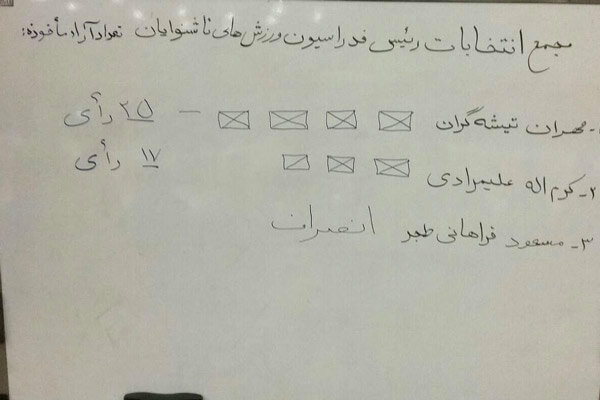 مجمع انتخابات رئیس فدراسیون ورزش های ناشنوایان تعداد آراء مأخوذه:
۱- مهران تیشه گران — ۲۵ رأی
۲- کرم اله علیمرادی ۱۷ رأی
۳- مسعود فراهانی طجر انصراف